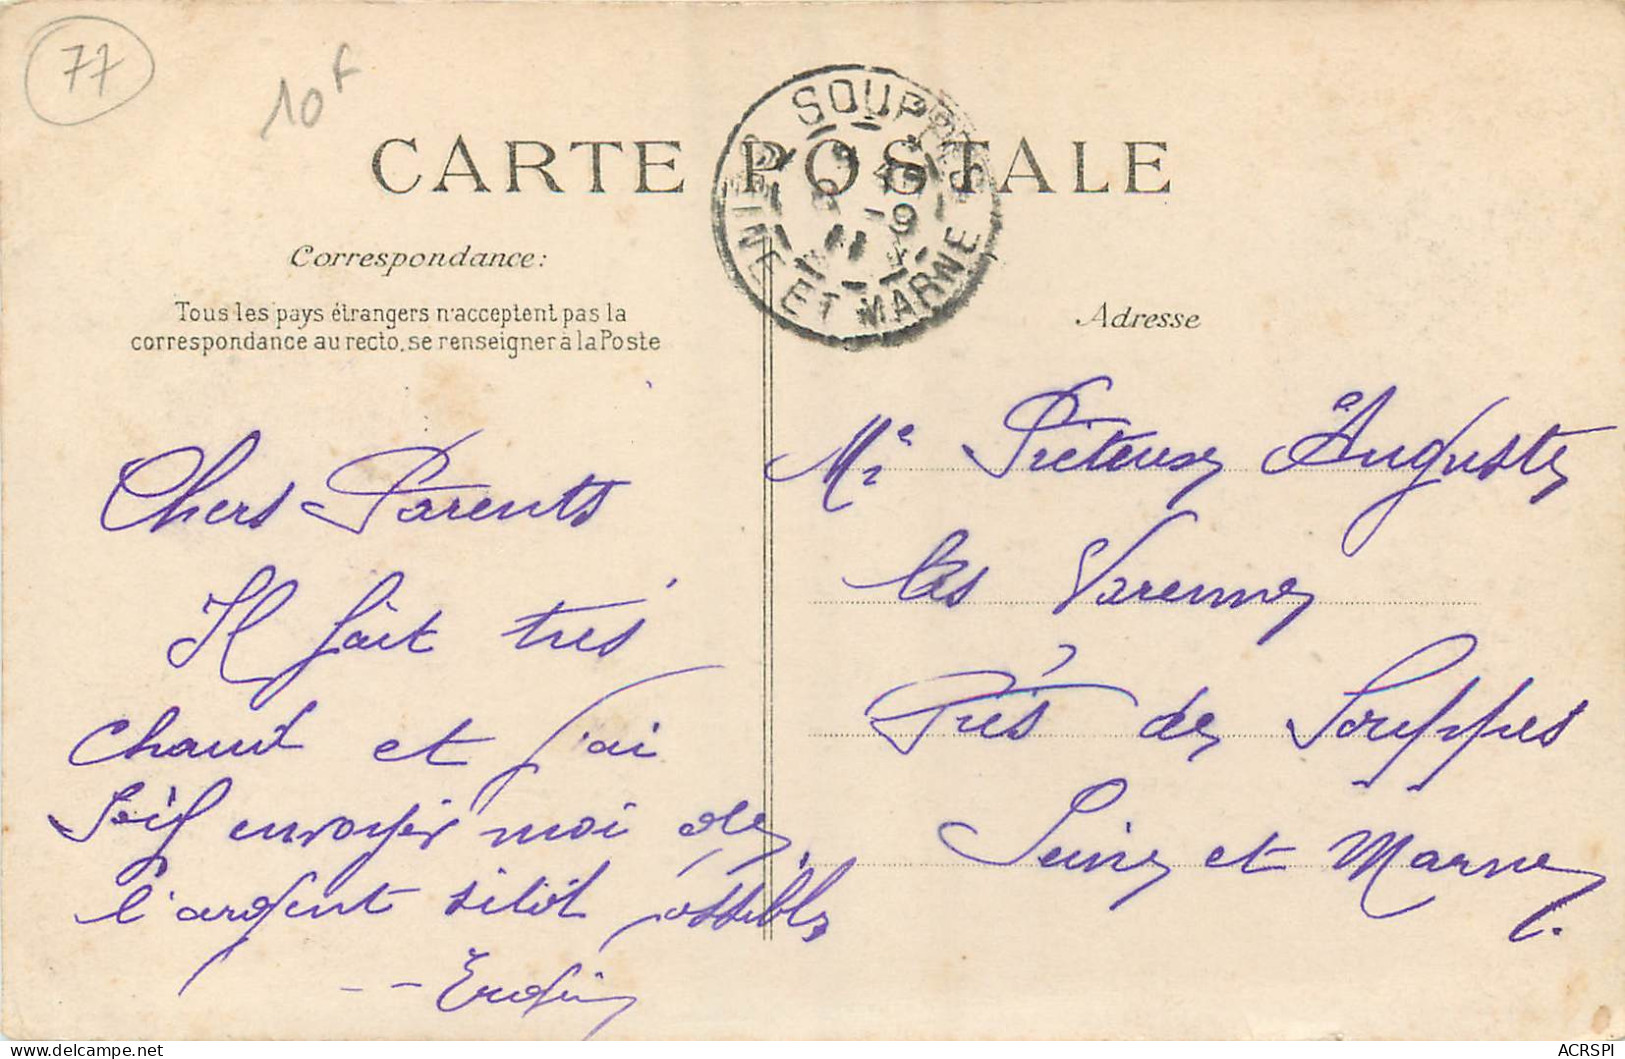 77
10 F
CARTE POSTALE
SOUPPES
SEINE ET MARNE
Correspondance:
Tous les pays étrangers n'acceptent pas la
correspondance au recto, se renseigner à la Poste
Chers Parents
Il fait très
chaud et j'ai
Soif envoyér moi de
l'argent sitôt possible
Adresse
Mr Auguste
les Varennes
Près de Souppes
Seine et Marne.
ACRSPI